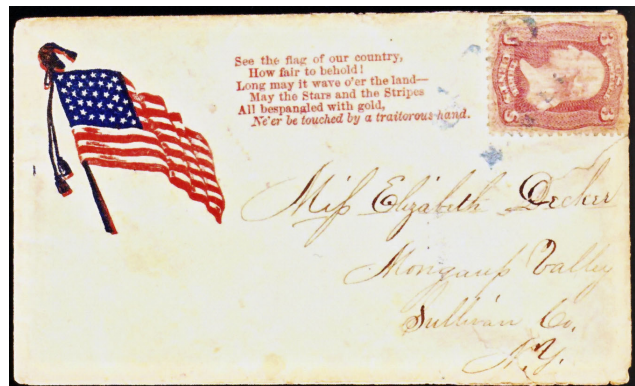 See the flag of our country,
How fair to behold!
Long may it wave o'er the land—
May the Stars and the Stripes
All bespangled with gold,
Ne'er be touched by a traitorous hand.
3 3
Miſs Elizabeth Decker
Mongaup Valley
Sullivan Co.
N.Y.